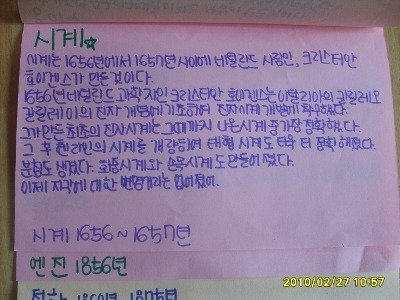 시계☆
시계는 1656년에서 1657년 사이에 네덜란드 사람인, 크리스티안
호이겐스가 만든 것이다.
1656년 네덜란드 과학자인 크리스티안 호이겐스는 이탈리아의 갈릴레오
갈릴레이의 진자 개념에 기초하여 진자시계 개발에 착수했다.
그가 만든 최초의 진자시계는 그때까지 나온 시계 중 가장 정확했다.
그 후 헨라인의 시계를 개량하여 태형 시계도 더욱 더 정확해졌다.
분침도 생겼다. 회중시계와 손목시계도 만들어졌다.
이제 지각에 대한 변명거리는 없어졌어.
시계 1656~1657년
엔진 1856년
전화 1860년, 1875년
2010/02/27 10:57